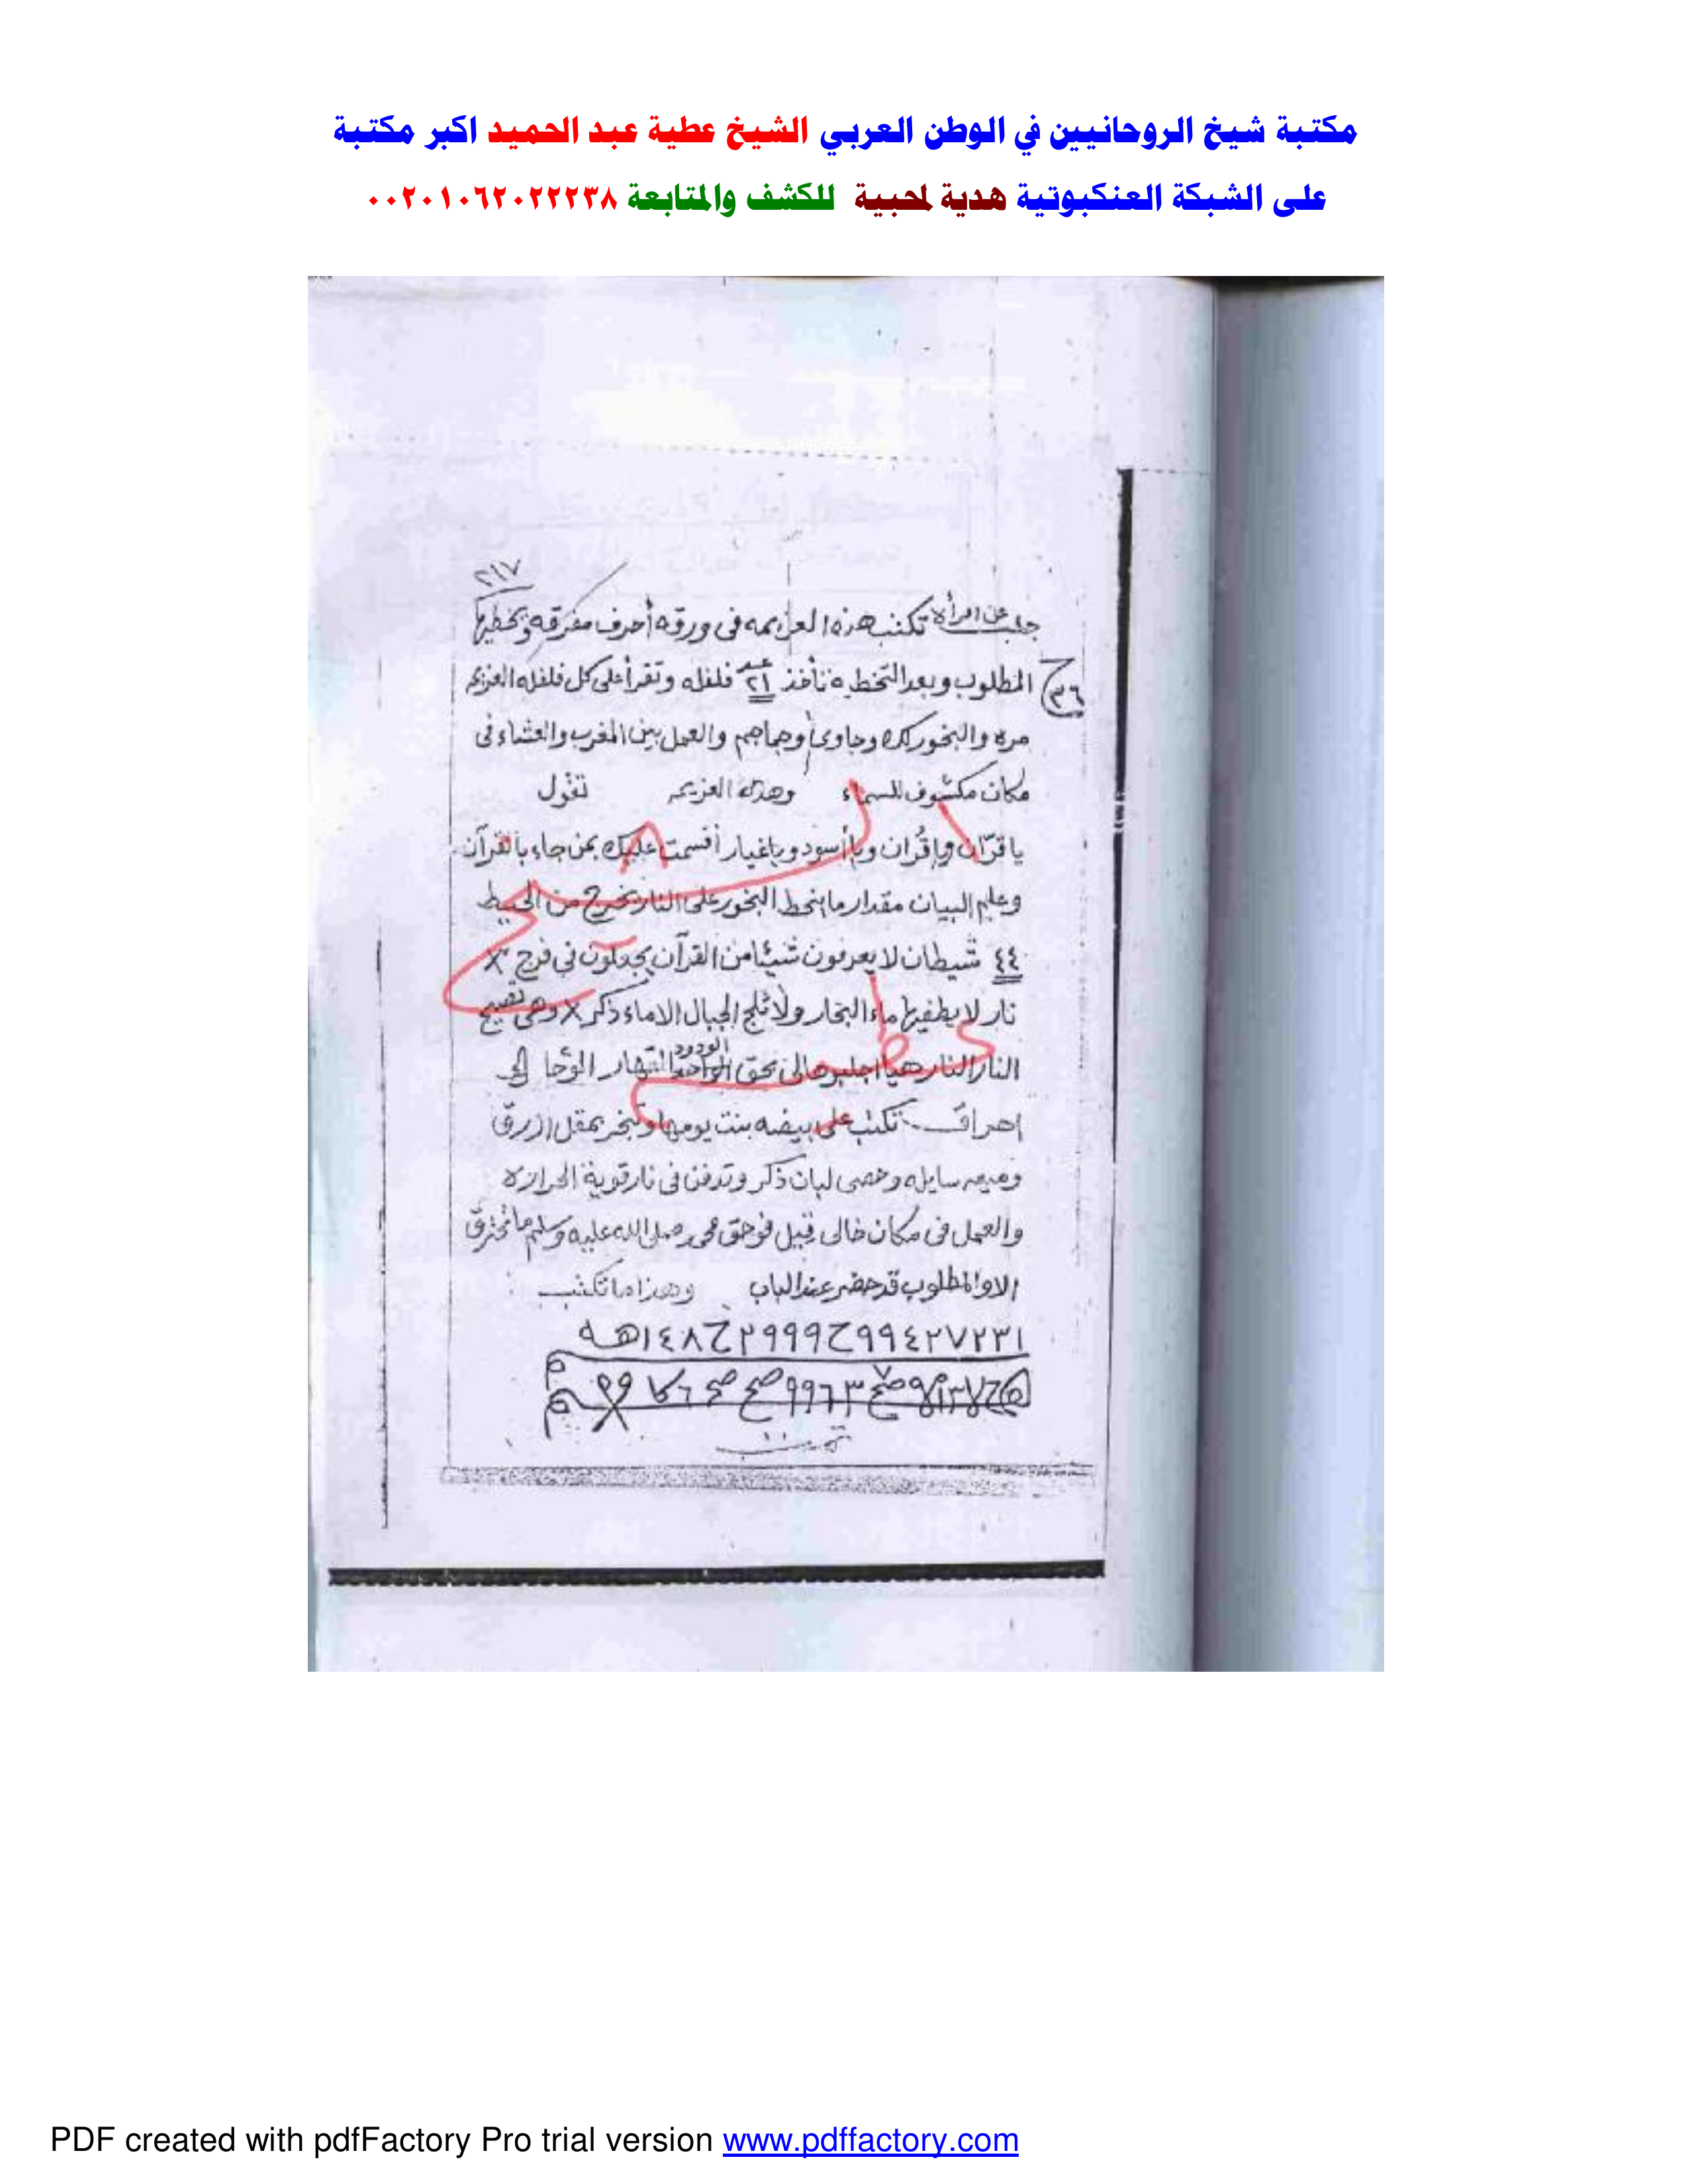 مكتبة شيخ الروحانيين في الوطن العربي الشيخ عطية عبد الحميد اكبر مكتبة
على الشبكة العنكبوتية هدية لمحبية للكشف والمتابعة ٠٠٢٠١٠٦٢٠٢٢٢٣٨
٢١٧
جلب عن امرأة تكتب هذه العزيمه فى ورقه أحرف مفرقه وتخطيها
٣٦ المطلوب وبعد التخطيه تأخذ عدد ٢١ فلفله وتقرأ على كل فلفله العزيمه
مره والبخور لك وجاوى وجماجم والعمل بين المغرب والعشاء فى
مكان مكشوف للسماء وهذه العزيمه تقول
يا قرّان ويا قُران ويا أسود ويا غيار أقسمت عليك بمن جاء بالقرآن
وعلم البيان مقدار ما ينحط البخور على النار تخرج من الحيط
٤٤ شيطان لا يعرفون شيئا من القرآن يجعلون فى فرج X
نار لا يطفيها ماء البحار ولا ثلج الجبال الا ماء ذكر X وهى تصيح
النار النار هيا اجلبوها الى بحق الودود القهار الوحا الخ
احراق تكتب على بيضه بنت يومها وتبخر بمقل ازرق
وميعه سايله وحصى لبان ذكر وتدفن فى نار قوية الحراره
والعمل فى مكان خالى قيل فوحق محمد صلى الله عليه وسلم ما تحترق
الا والمطلوب قد حضر عند الباب وهذا ما تكتب
تمت
PDF created with pdfFactory Pro trial version www.pdffactory.com